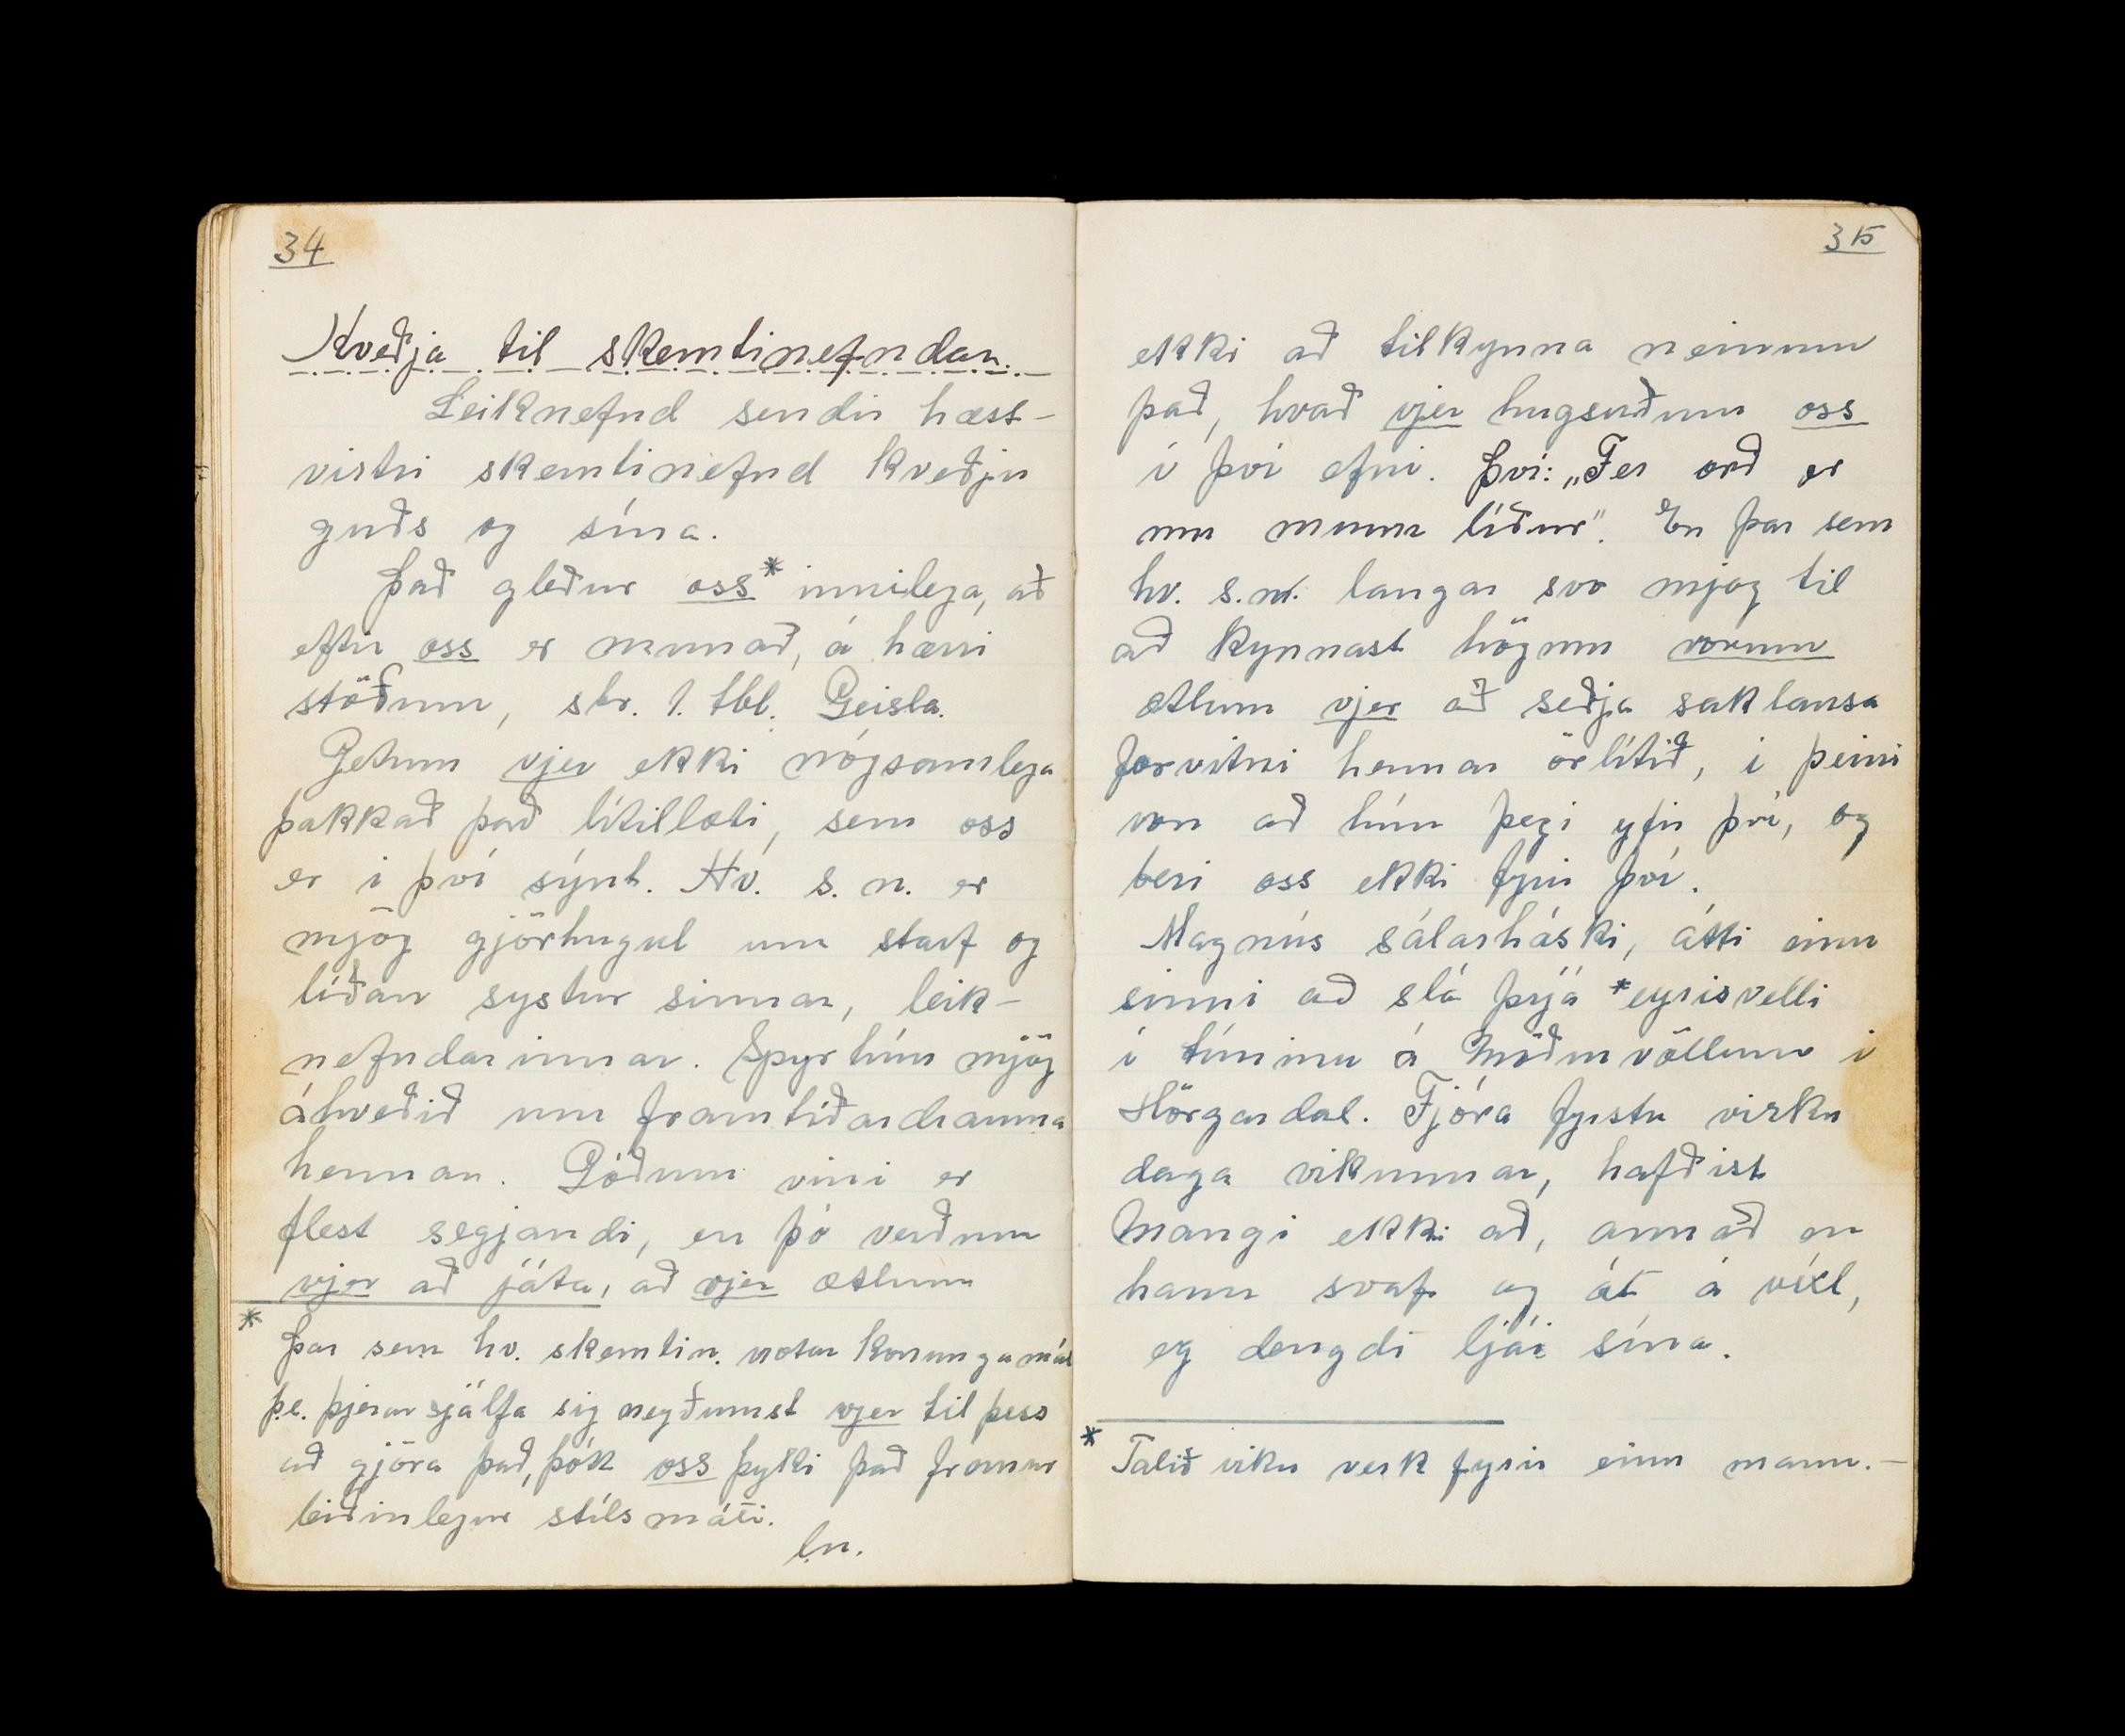 34
Kveðja til skemtinefndar.
Leiknefnd sendir hæst-
virtri skemtinefnd kveðju
guðs og sína.
Það gleður oss* innilega, að
eftir oss er munað, á hærri
stöðum, sbr. 1. tbl. Geisla.
Getum vjer ekki nógsamlega
þakkað það lítillæti, sem oss
er í því sýnt. Hv. s. n. er
mjög gjörhugul um starf og
líðan systur sinnar, leik-
nefndarinnar. Spyr hún mjög
ákveðið um framtíðardrauma
hennar. Góðum vini er
flest segjandi, en þó verðum
vjer að játa, að vjer ætlum
* Þar sem hv. skemtin. notar konungamál
þ.e. þjerar sjálfa sig neyðumst vjer til þess
að gjöra það, þótt oss þyki það fremur
leiðinlegur stílsmáti.
Ln.
35
ekki að tilkynna neinum
það, hvað vjer hugsuðum oss
í því efni. Því: „Fer orð er
um munn líður". En þar sem
hv. s.n. langar svo mjög til
að kynnast högum vorum
ætlum vjer að seðja saklausa
forvitni hennar örlítið, í þeirri
von að hún þegi yfir því, og
beri oss ekki fyrir því.
Magnús sálarháski, átti einu
sinni að slá þrjá *eyrisvelli
í túninu á Möðruvöllum í
Hörgárdal. Fjóra fyrstu virku
daga vikunnar, hafðist
Mangi ekki að, annað en
hann svaf og át á víxl,
og dengdi ljái sína.
* Talið viku verk fyrir einn mann.-